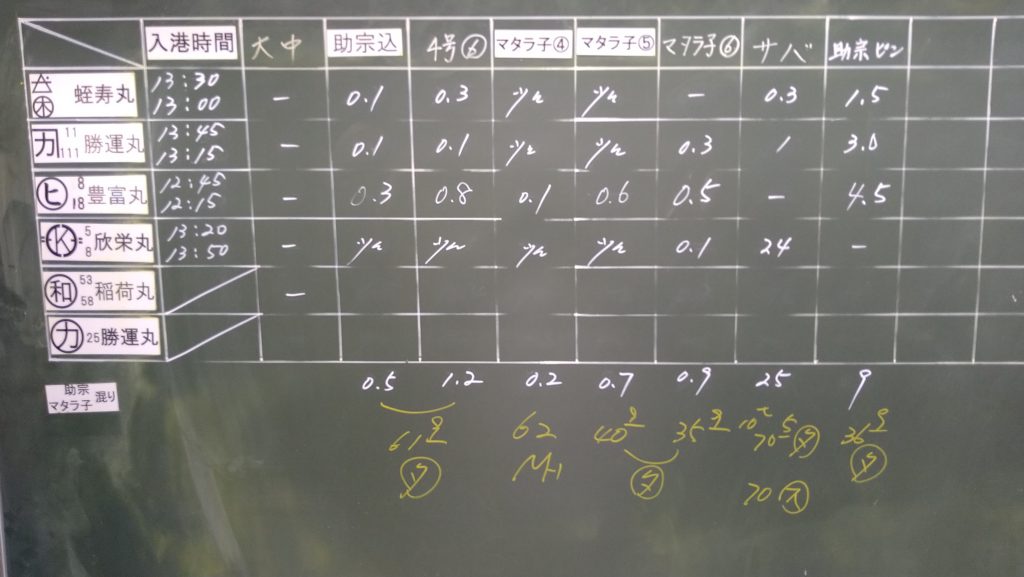 入港時間 大中 助宗込 4号 マタラ子④ マタラ子⑤ マタラ子⑥ サバ 助宗ピン
蛭寿丸 13:30 13:00 - 0.1 0.3 少々 少々 - 0.3 1.5
カ 11 111 勝運丸 13:45 13:15 - 0.1 0.1 少々 少々 0.3 1 3.0
ヒ 8 18 豊富丸 12:45 12:15 - 0.3 0.8 0.1 0.6 0.5 - 4.5
K 5 8 欣栄丸 13:20 13:50 - 少々 少々 少々 少々 0.1 24 -
和 53 58 稲荷丸 -
カ 25 勝運丸
助宗 マタラ子 混り 0.5 1.2 0.2 0.7 0.9 25 9
61 62 40 35 70 36
70